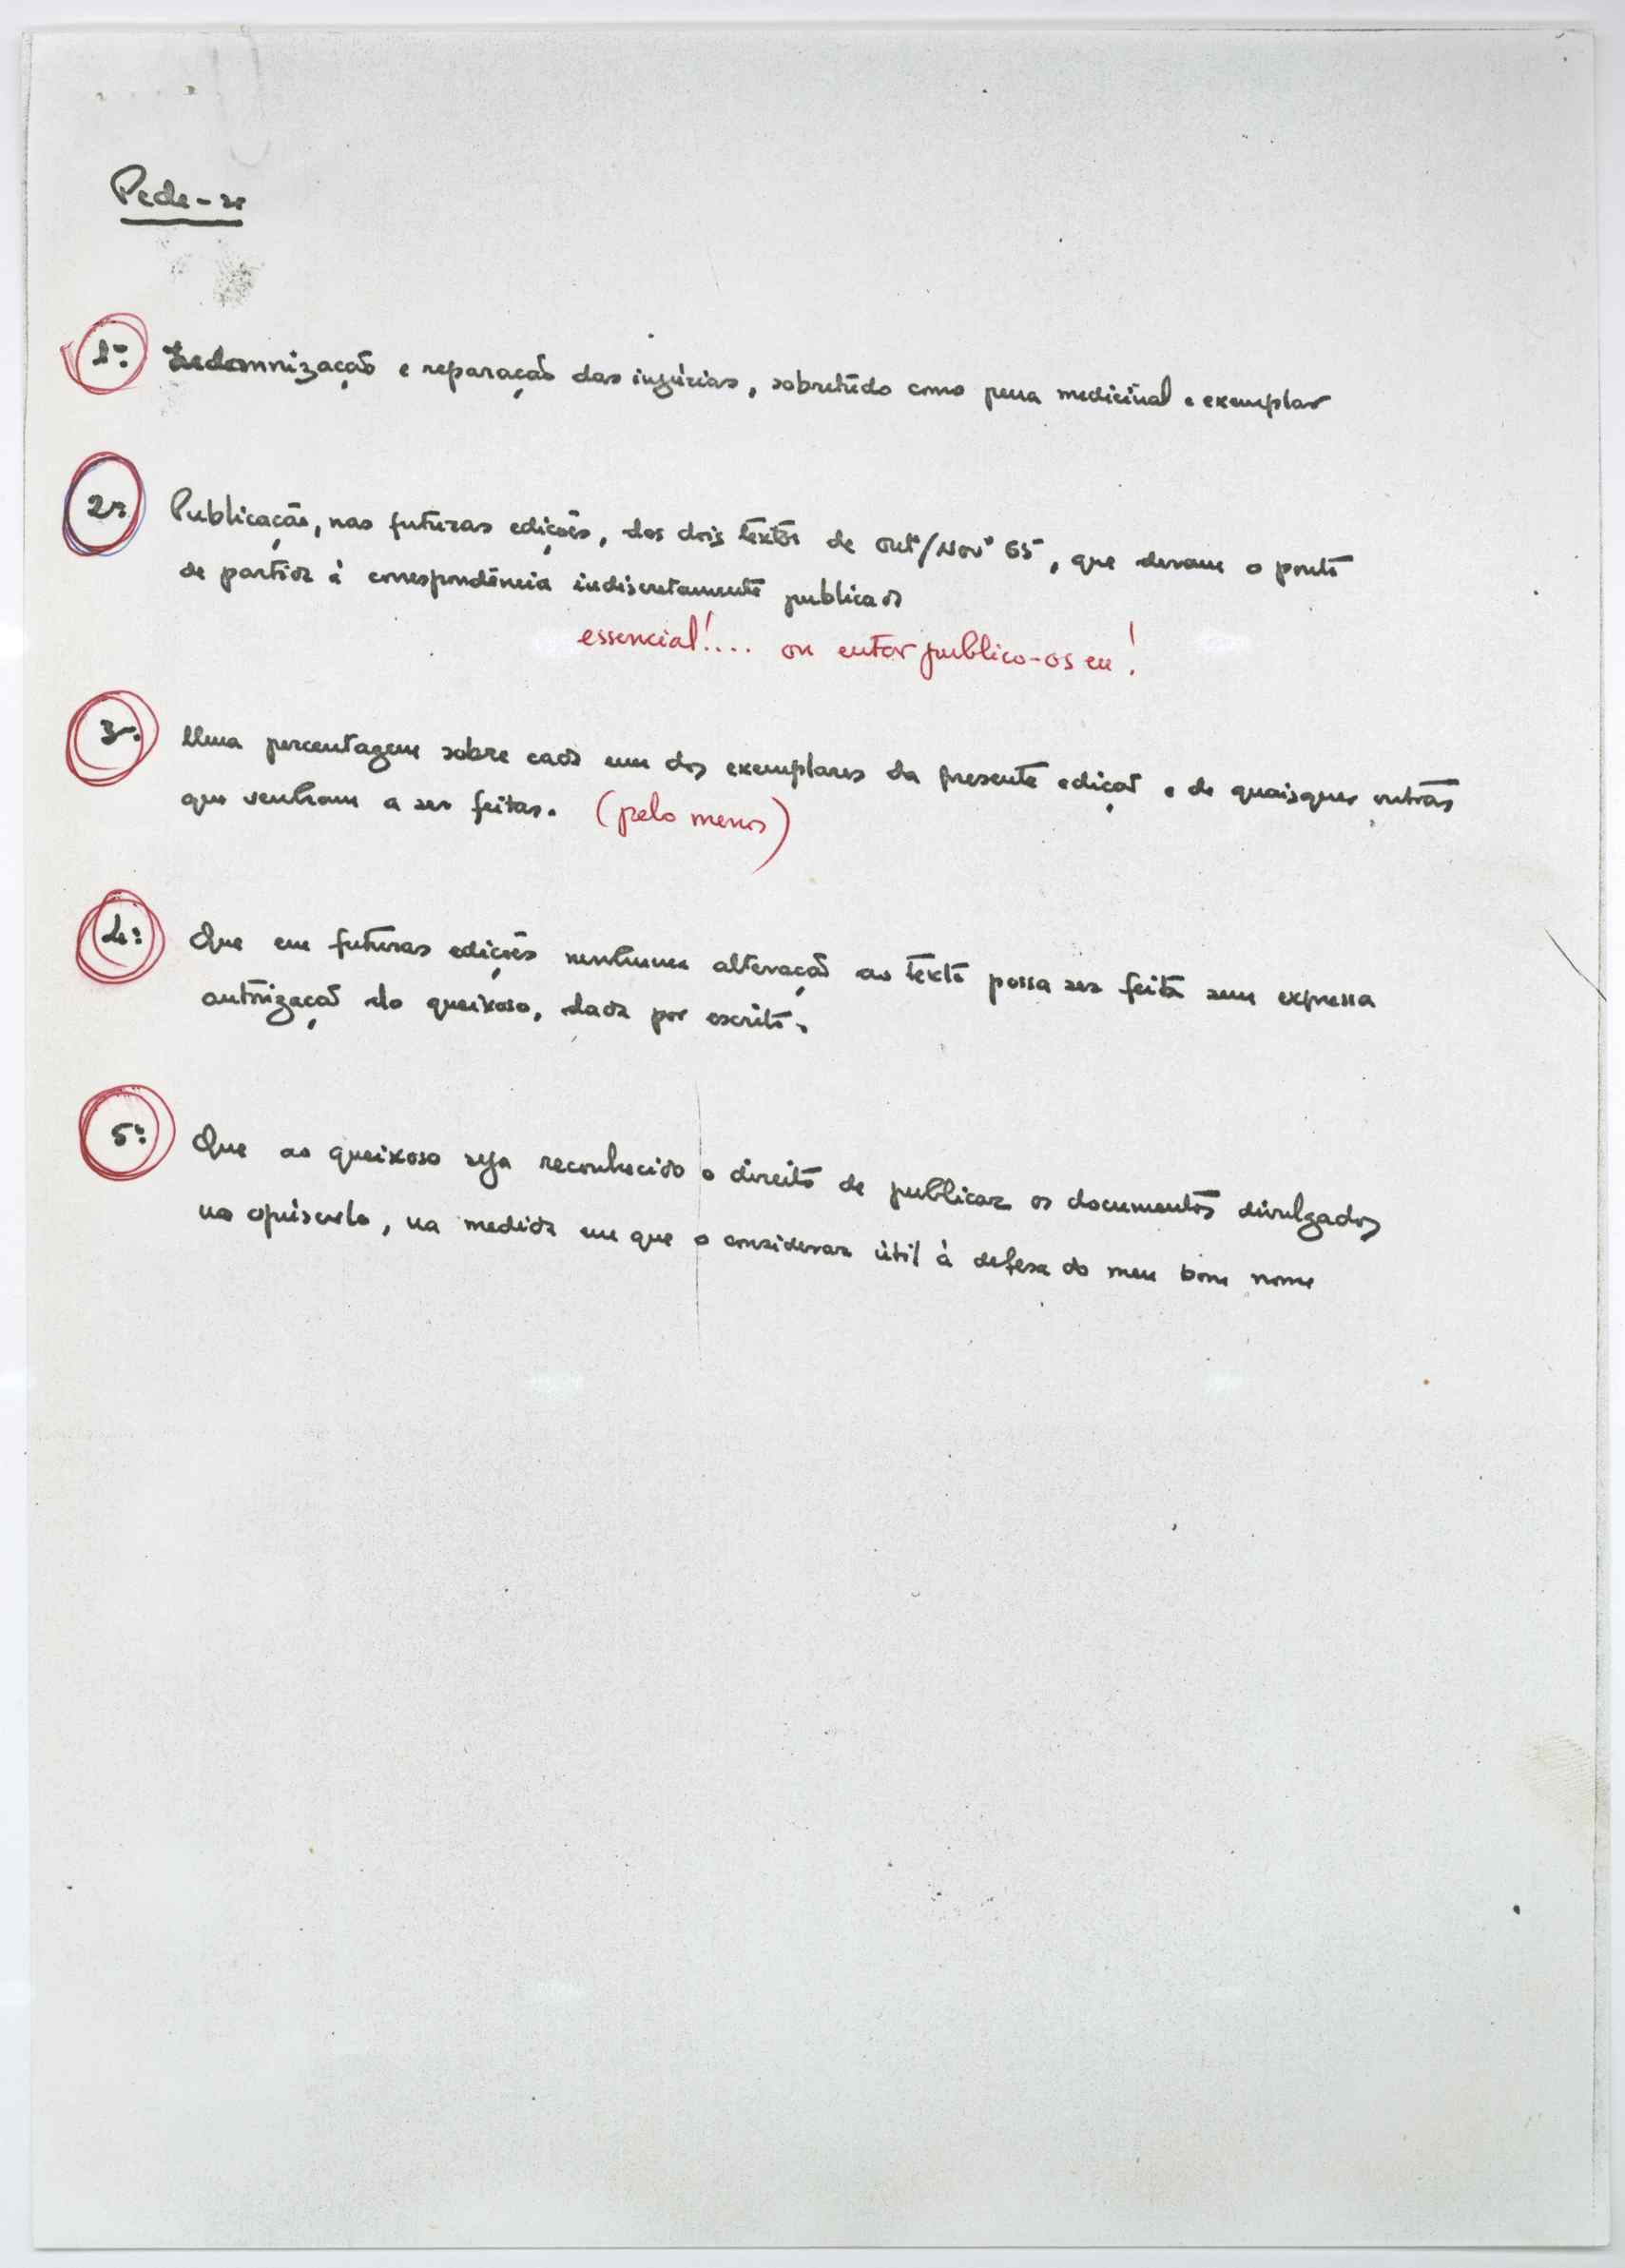 Pede-se
1º. Indemnização e reparação das injúrias, sobretudo como pena medicinal e exemplar
2º. Publicação, nas futuras edições, dos dois textos de Outº/Novº 65, que deram o ponto
de partida à correspondência indiscretamente publicada
essencial!.... ou então publico-os eu!
3º. Uma percentagem sobre cada um dos exemplares da presente edição e de quaisquer outras
que venham a ser feitas. (pelo menos)
4º. Que em futuras edições nenhuma alteração ao texto possa ser feita sem expressa
autorização do queixoso, dada por escrito.
5º. Que ao queixoso seja reconhecido o direito de publicar os documentos divulgados
no opúsculo, na medida em que o considerar útil à defesa do meu bom nome